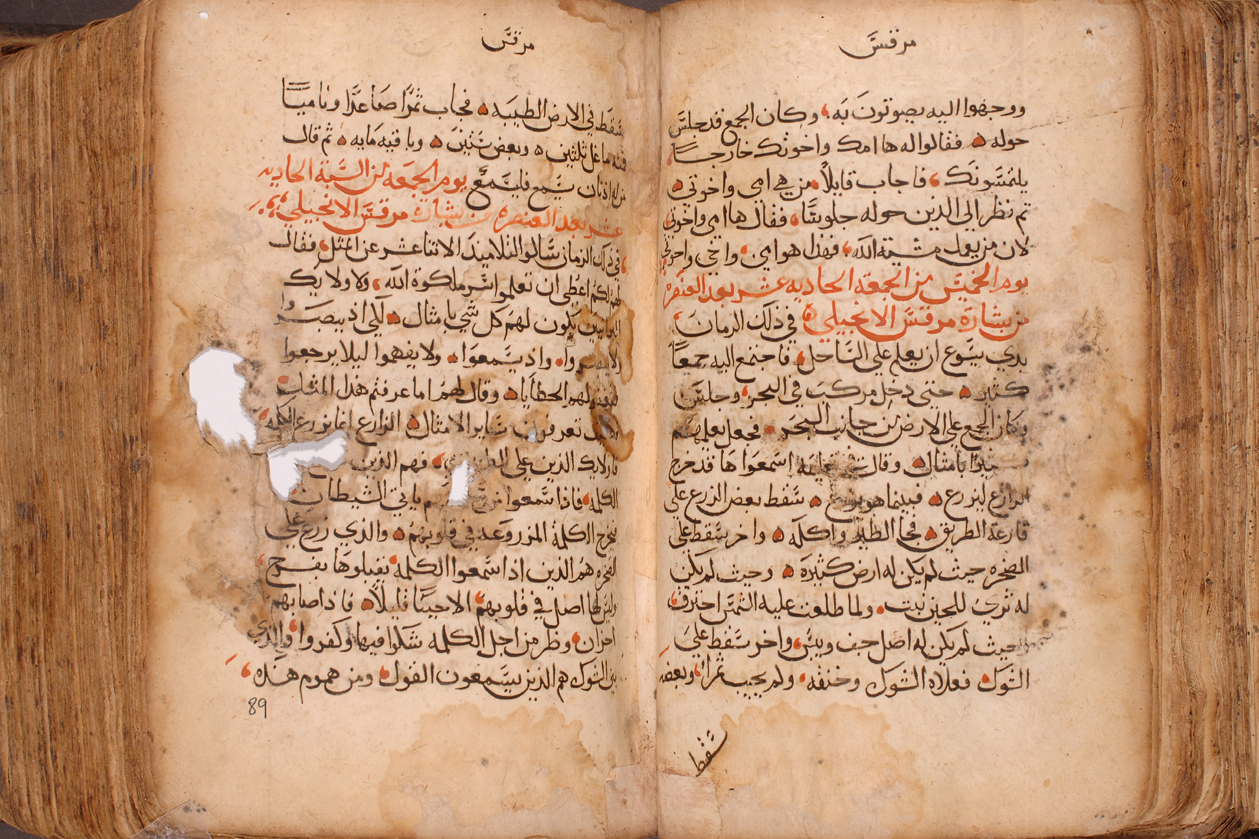 مرقس
ووجهوا اليه يصوتون به وكان الجمع قد جلس
حوله فقالوا له ها امك واخوتك خارجا
يلتمسونك فاجاب قايلا من هي امي واخوتي
ثم نظر الي الذين حوله جلوسا فقال ها امي واخوتي
لان من يعمل مشية الله فهذا هو امي واخي واختي
يوم الخميس من الجمعة الحاديه عشر بعد العنصره
من بشارة مرقس الانجيلي في ذلك الزمان
بدي يسوع ان يعلم علي الساحل فاجتمع اليه جمعا
كثير حتي دخل مركب في البحر وجلس
وكان الجمع علي الارض من جانب البحر فجعل يعلمهم
بامثال وقال في تعليمه اسمعوا ها قد خرج
الزارع ليزرع فبينما هو يزرع سقط بعض الزرع علي
قارعة الطريق فجا الطير واكله واخر سقط علي
الصخره حيث لم يكن له ارض كثيرة وحيث لم يكن
له ثري للحين نبت ولما طلعت عليه الشمس احترق
وحيث لم يكن له اصل جف ويبس واخر سقط علي
الشوك فعلاه الشوك وخنقه ولم يجيب ثمرا وبعضه
سقط
مرقس
سقط في الارض الطيبه فجاب ثمرا صاعدا وناميا
فمنه ما غل ثلثين وبعض ستين وباقيه مايه ثم قال
من له اذنان تسمع فليسمع يوم الجمعه من السبة الحاديه
عشر بعد العنصره من بشاره مرقس الانجيلي
في ذلك الزمان سالوا التلاميذ الاثنا عشر عن المثل فقال
لهم لكم اعطي ان تعلموا سر ملكوة الله ولاولايك
يكون لهم كل شي بامثال لكي اذ يبصروا
ولا يبصروا واذ يسمعوا ولا يفهموا ليلا يرجعوا
فيغفر لهم الخطايا وقال لهم اما عرفتم هذا المثل
فكيف تعرفون ساير الامثال الزارع انما زرع الكلمه
فاولايك الذين علي الطريق فهم الذين
الكلمه فاذا سمعوا ياتي الشيطان
فيخرج الكلمة المزروعه في قلوبهم والذي زرع علي
الصخره هم الذين اذا سمعوا الكلمة تقبلوها بفرح
وليس لها اصل في قلوبهم الا حينا قليلا فاذا صابهم
احزان وطرد من اجل الكلمه شكوا فيها وكفروا والذي
بين الشوك هم الذين يسمعون القول ومن هموم هذه
89